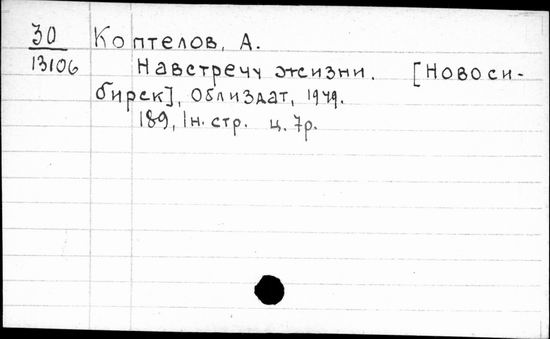 30 Коптелов, А.
13106 Навстречу жизни. [Новоси-
бирск], Облиздат, 1949.
189, 1н. стр. ц. 7р.